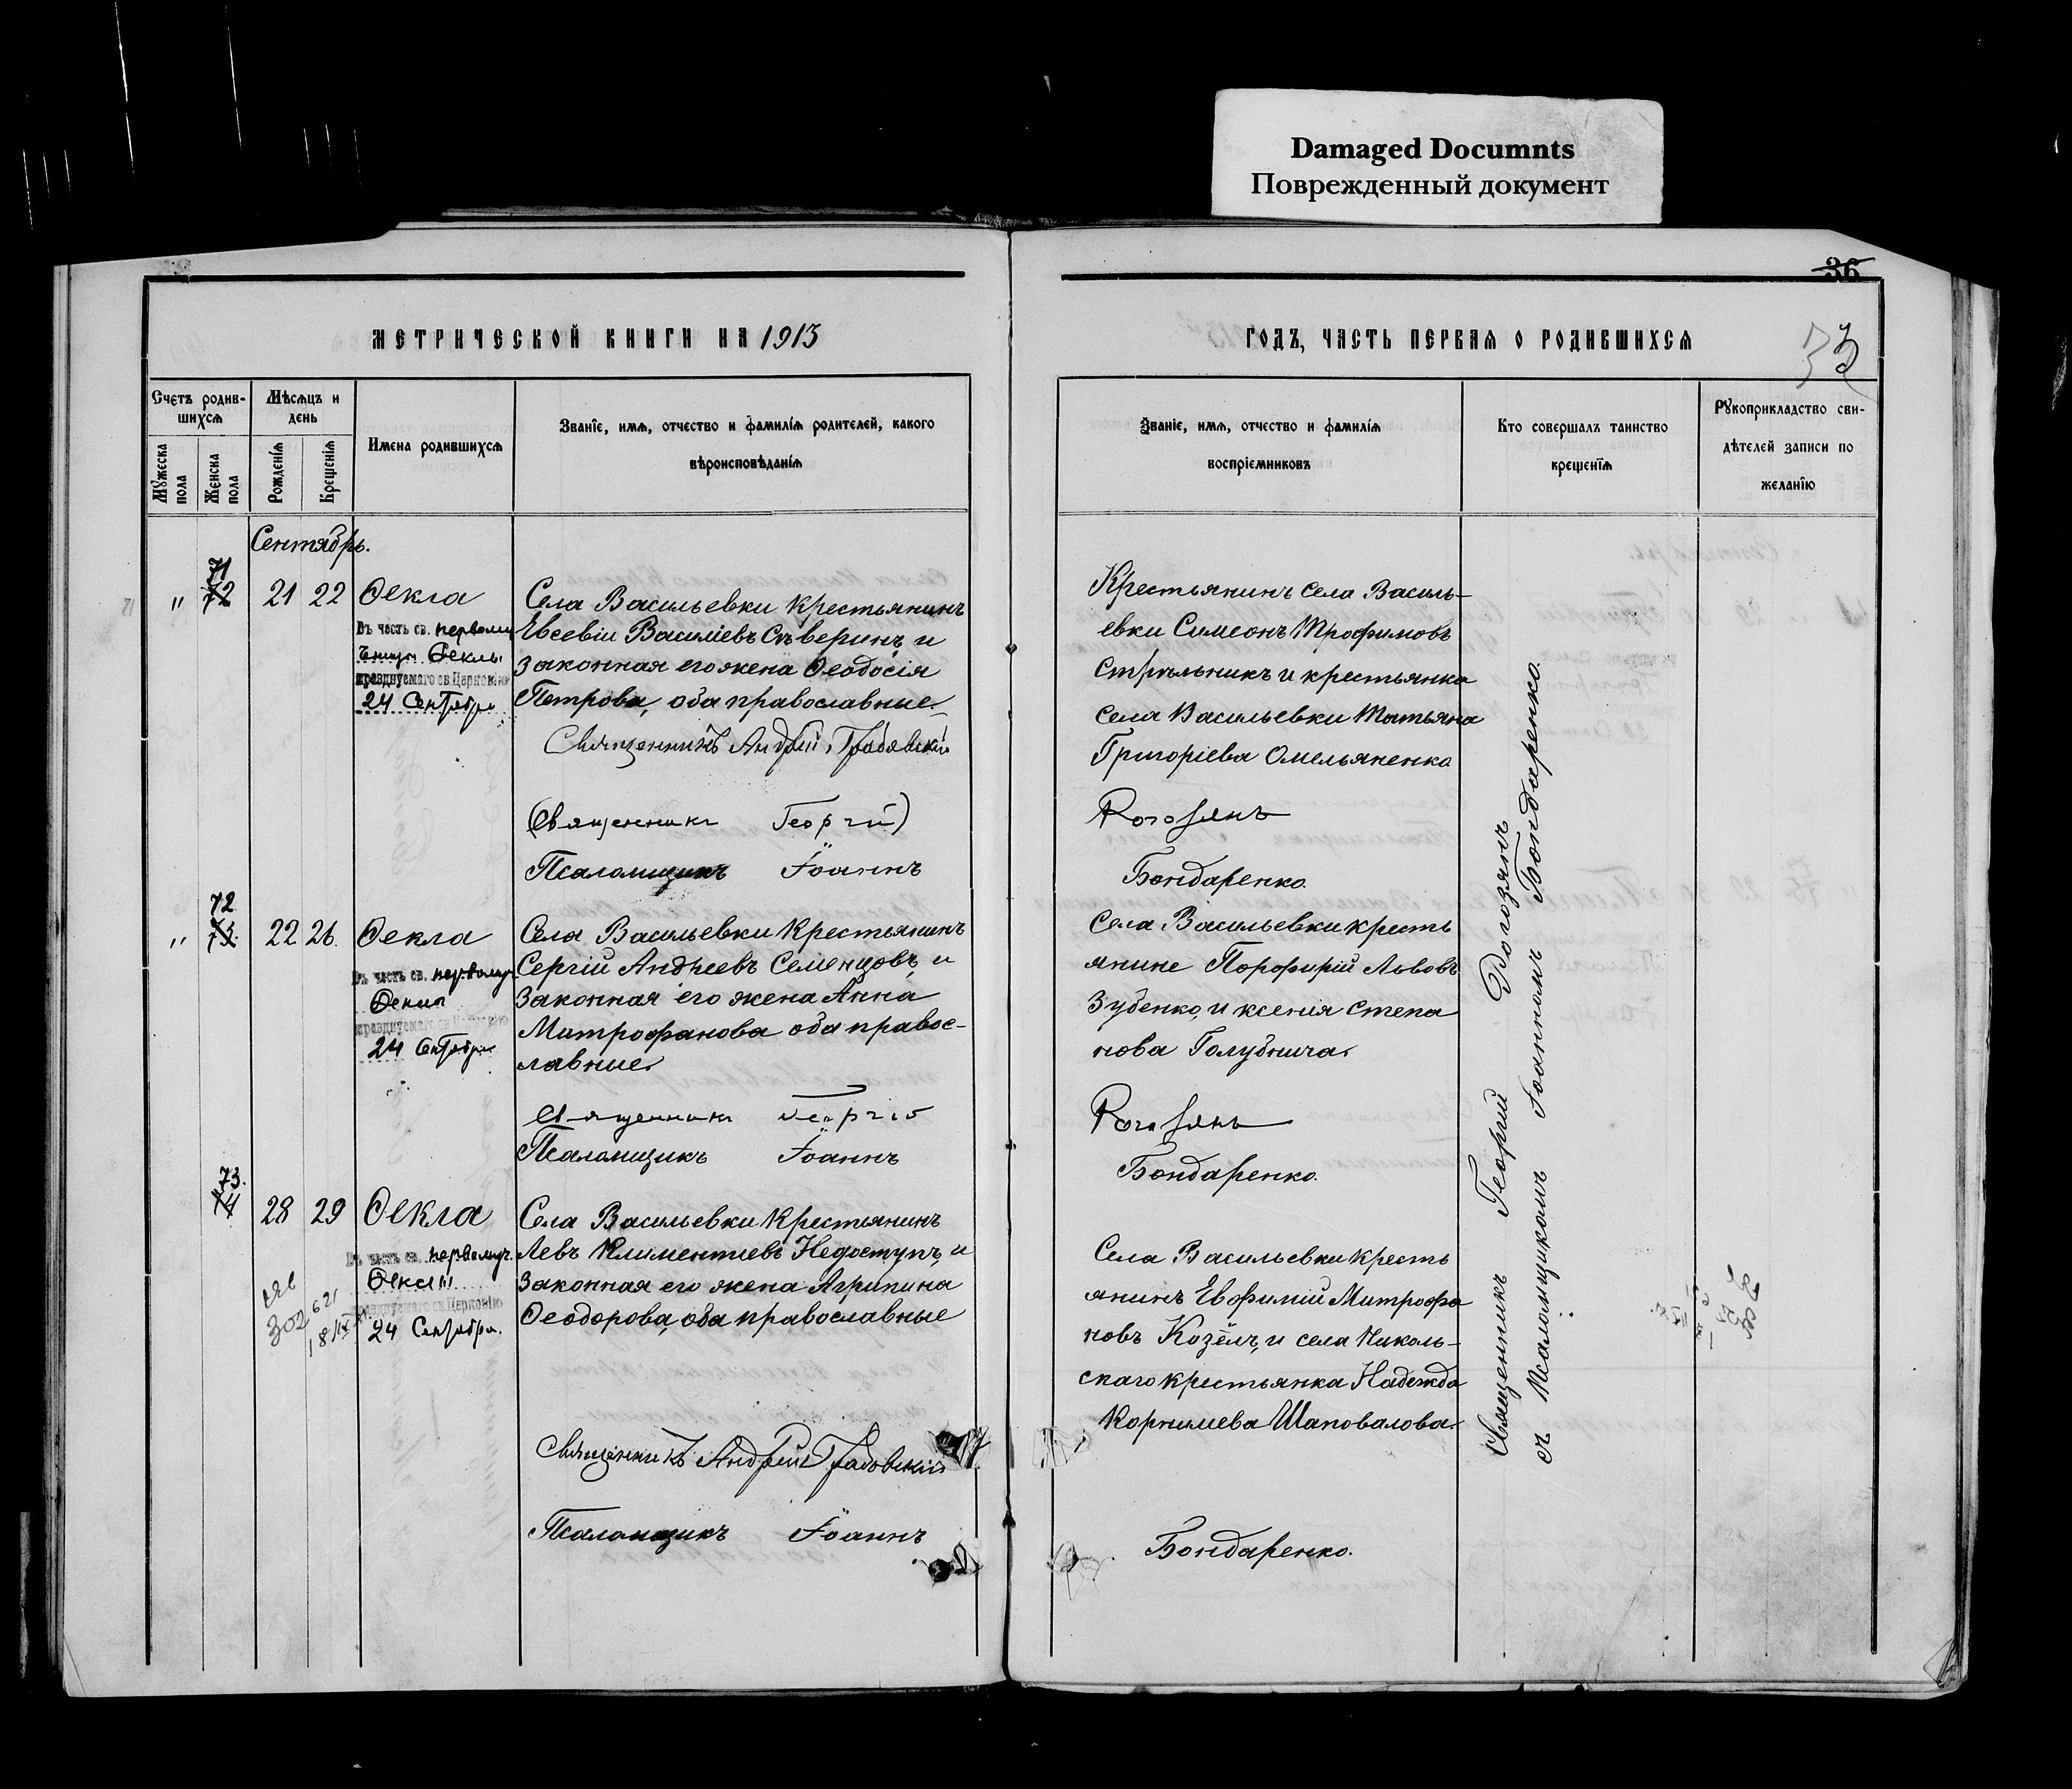 Damaged Documnts
Поврежденный документ
36
33
МЕТРИЧЕСКОЙ КНИГИ НА 1913
ГОДЪ, ЧАСТЬ ПЕРВАЯ О РОДИВШИХСЯ
Счетъ родив-
шихся
Мужеска
пола
Женска
пола
Мѣсяцъ и
день
Рожденія
Крещенія
Имена родившихся
Званіе, имя, отчество и фамилія родителей, какого
вѣроисповѣданія
Званіе, имя, отчество и фамилія
воспріемниковъ
Кто совершалъ таинство
крещенія
Рукоприкладство сви-
дѣтелей записи по
желанію
Сентябрь.
71
" 72 21 22 Ѳекла
Въ честь св. первому
Ѳеклы
празднуемаго св Церковію
24 Сентября
Села Васильевки крестьянинъ
Евсевій Василіевъ Сѣверинъ, и
законная его жена Ѳеодосія
Петрова, оба православные.
Священникъ Андрей Грабовскій
(Священникъ Георгій)
Псаломщикъ Іоаннъ
Крестьянинъ села Василь-
евки Симеонъ Трофимовъ
Стрѣльникъ и крестьянка
села Васильевки Татьяна
Григоріева Омельяненко
Рогозянъ
Бондаренко.
72
" 73. 22 26. Ѳекла
Въ честь св. первомуч.
Ѳеклы
празднуемаго св Церковію
24 Сентября
Села Васильевки крестьянинъ
Сергій Андреевъ Семенцовъ, и
законная его жена Анна
Митрофанова оба правос-
лавные.
Священникъ Георгій
Псаломщикъ Іоаннъ
Села Васильевки кресть
янине Порфирій Львовъ
Зубенко, и ксенія Степа
нова Голубнича.
Рогозянъ
Бондаренко.
73.
28 29 Ѳекла
Въ честь св. первомуч.
Ѳеклы
празднуемаго св Церковію
24 Сентября.
302 621
Села Васильевки крестьянинъ
Левъ Климентиевъ Недоступъ, и
законная его жена Агрипина
Ѳеодорова, оба православные
Священникъ Андрей Грабовскій
Псаломщикъ Іоаннъ
Села Васильевки кресть
янинъ Евфимій Митрофа
новъ Козёлъ, и села Николь-
скаго крестьянка Надежда
Корнилева Шаповалова.
Бондаренко.
Священникъ Георгий Рогозянъ
съ Псаломщикомъ Іоанномъ Бондаренко.